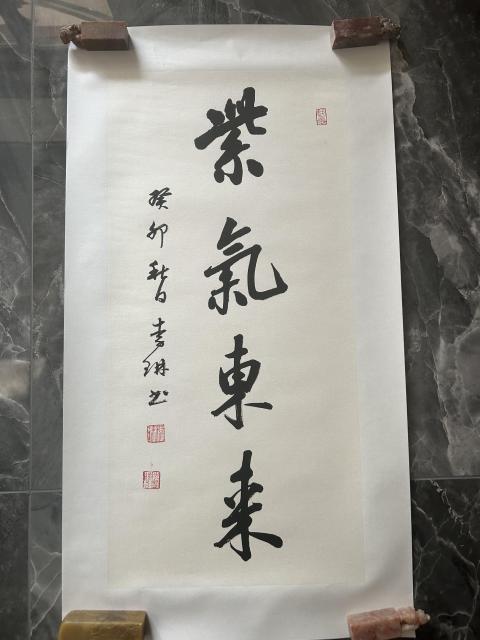 紫氣東来
癸卯秋日李琳书